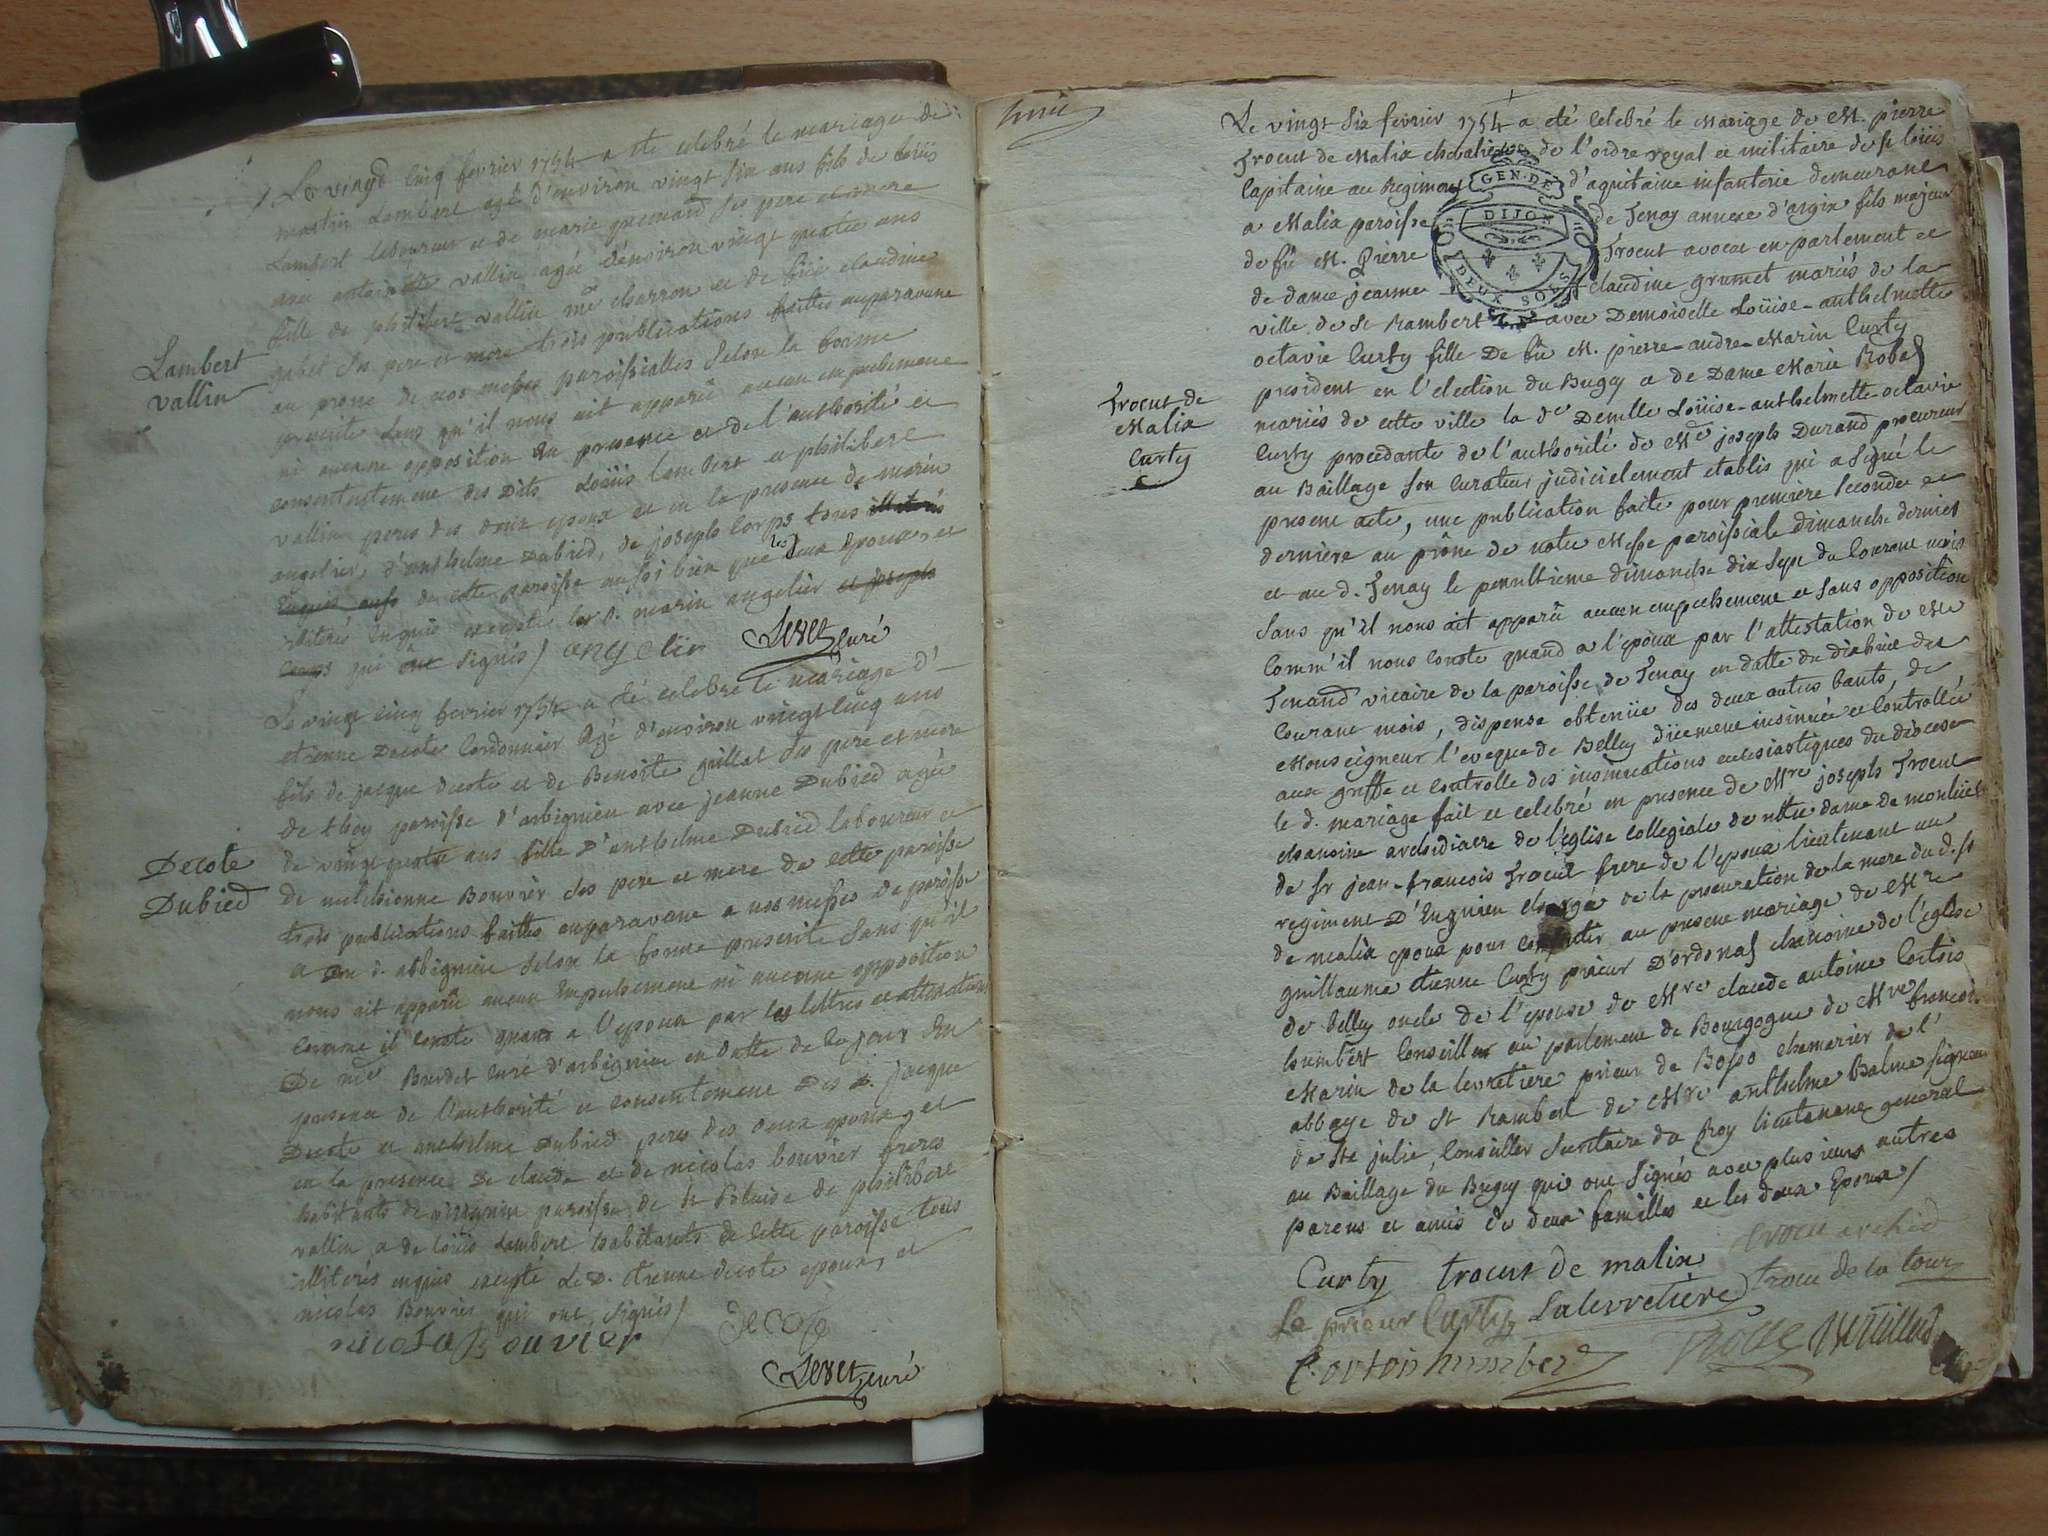 Le vingt cinq fevrier 1754 a été celebré le mariage de
martin Lambert agé d'environ vingt six ans fils de loüis
Lambert laboureur et de marie guenard ses pere et mere
avec antoinette vallin agée d'environ vingt quatre ans
fille de philibert vallin me charron et de feüe claudine
gabet ses pere et mere trois publications faittes auparavant
au prone de nos messes paroissialles selon la forme
prescrite sans qu'il nous ait apparû aucun empechement
ni aucune opposition en presence et de l'authorité et
consentement des dits Loüis lambert et philibert
vallin peres des deux epoux et en la presence de marin
angelier, d'anthelme Dubied, de joseph corps tous
de cette paroisse aussi bien que les deux epoux, et
illiterés enquis excepté led. marin angelier et joseph
corps qui ont signés /
angelier
Levet curé
Lambert
vallin
Le vingt cinq fevrier 1754 a été celebré le mariage d'
etienne Decote Cordonnier agé d'environ vingt cinq ans
fils de jacque decote et de Benoite guillot ses pere et mere
de thoy paroisse d'arbignieu avec jeanne Dubied agée
de vingt quatre ans fille d'anthelme Dubied laboureur et
de melchionne Bouvier ses pere et mere de cette paroisse
trois publications faittes auparavant a nos messes de paroisse
a au d. arbignieu selon la forme prescrite sans qu'il
nous ait apparû aucun Empechement ni aucune opposition
comme il conste quand a l'epoux par les lettres et attestation
De me Burdet curé d'arbignieu en datte de ce jour En
presence de l'authorité et consentement des d. jacque
Decote et anthelme Dubied peres des deux epoux, et
en la presence de claude et de nicolas bouvier freres
habitants de paroisse de st Blaise de philibert
vallin et de loüis Lambert habitants de cette paroisse tous
illiterés enquis excepté Le D. etienne decote epoux, et
nicolas Bouvier qui ont signés /
nicolas Bouvier
decote
Levet curé
Decote
Dubied
Le vingt six fevrier 1754 a été celebré le Mariage de M. pierre
Trocut de Malix chevalier de l'ordre royal et militaire de st loüis
Capitaine au Regiment d'aquitaine infanterie demeurant
a Malix paroisse de Tenay annexe d'argix fils majeur
de fû M. Pierre Trocut avocat en parlement et
de dame jeanne claudine grumet mariés de la
ville de St Rambert avec Demoiselle Loüise-anthelmette
octavie Curty fille De fû M. pierre-andre-Marin Curty
president en l'election du Bugey et de Dame Marie Robes
mariés de cette ville la de Demlle Loüise-anthelmette-octavie
Curty procedante de l'authorité de Me joseph Durand procureur
au Baillage son Curateur judiciellement etablis qui a signé le
present acte, une publication faite pour premiere seconde et
derniere au prône de notre Messe paroissiale dimanche dernier
et au d. Tenay le penultieme dimanche dix sept du courant mois
sans qu'il nous ait apparû aucun empechement et sans opposition
comm'il nous conste quand a l'epoux par l'attestation de Me
Tenand vicaire de la paroisse de Tenay en datte du dixhuit du
courant mois, dispense obtenüe des deux autres bants, de
Monseigneur l'eveque de Belley düement insinuée et Controllée
aux greffe et controlle des insinuations eclesiastiques du diocese
le d. mariage fait et celebré en presence de Mre joseph Trocut
chanoine archidiacre de l'eglise collegiale de nôtre dame de monluel
de Sr jean-francois Trocut frere de l'epoux lieutenant au
regiment D'Enguien chargé de la procuration de la mere du d. Sr
de malix epoux pour consentir au present mariage de Mre
guillaume etienne Curty prieur D'ordonas chanoine de l'eglise
de belley oncle de l'epouse de Mre claude antoine Cortois
humbert Conseiller au parlement de Bourgogne de Mre francois
Marin de la levretiere prieur de Bosso chamarier de l'
abbaye de St Rambert de Mre anthelme Balme seigneur
de Ste julie, Conseiller secretaire du Roy lieutenant general
au Baillage du Bugey qui ont signés avec plusieurs autres
parens et amis de deux familles et les deux Epoux /
Trocut de
Malix
Curty
GEN. DE
DIJON
DEUX SOLS
Curty trocut de malix trocu archid
Le prieur Curty Lalevretiere trocu de la tour
Cortois humbert